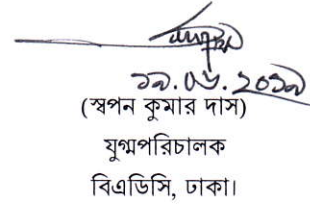 ১৯.০৬.২০১৯
(স্বপন কুমার দাস)
যুগ্মপরিচালক
বিএডিসি, ঢাকা।